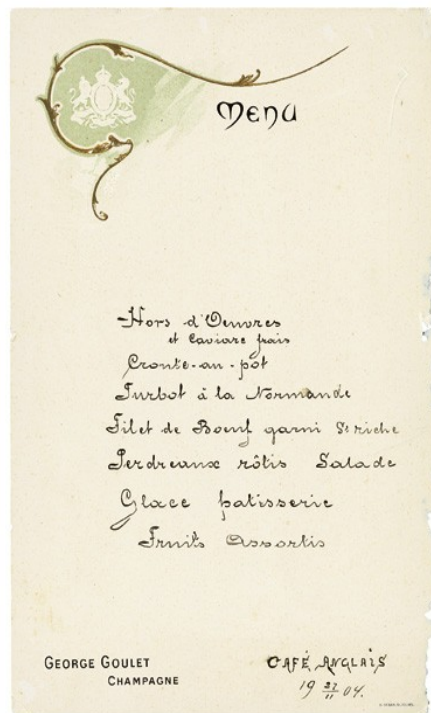 Menu
Hors d'Oeuvres
et Caviare frais
Croute-au-pot
Turbot à la Normande
Filet de Boeuf garni St riche
Perdreaux rôtis Salade
Glace patisserie
Fruits Assortis
GEORGE GOULET
CHAMPAGNE
CAFÉ ANGLAIS
19 22/11 04.